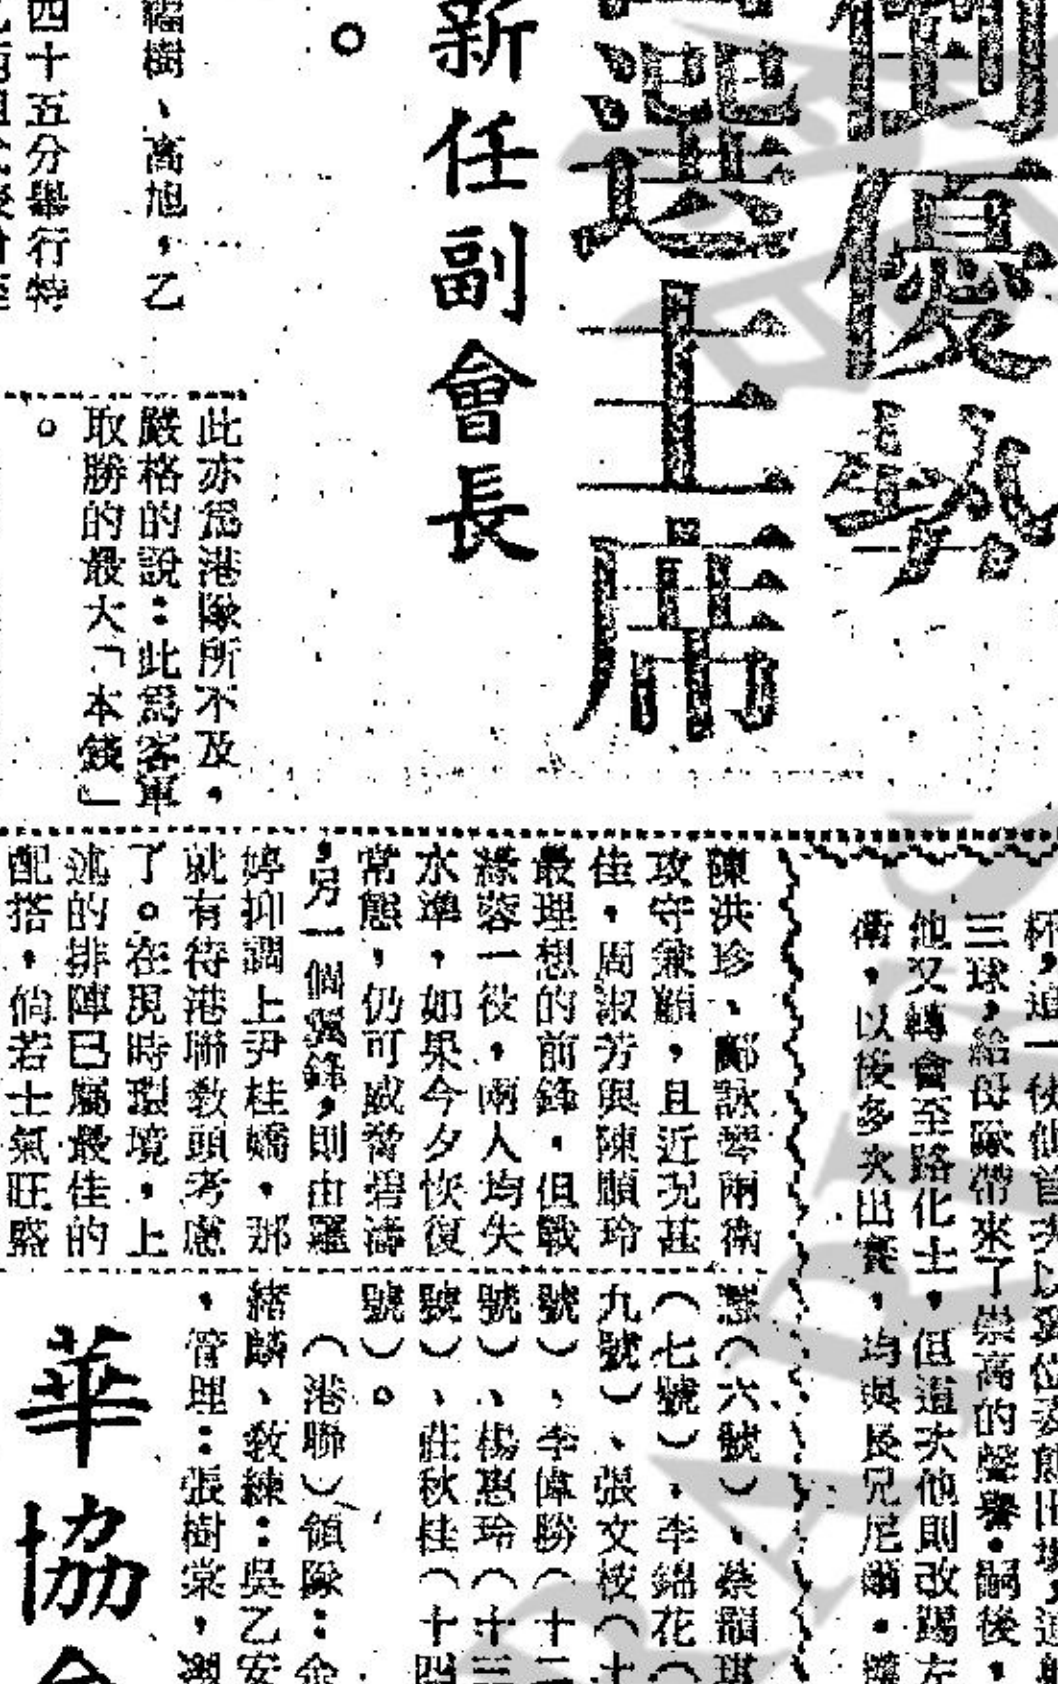 倒優勢
選主席
新任副會長
。
樹、高旭，乙
四十五分舉行特
此亦爲港隊所不及，
嚴格的說：此爲客軍
取勝的最大「本錢」
。
三球，給母隊帶來了崇高的聲譽。嗣後，
他又轉會至路化士，但這次他則改踢左
衛，以後多次出賽，均與長兄尼爾。
陳洪珍、鄺詠琴兩衛
攻守兼顧，且近況甚
佳，周淑芳與陳順玲
最理想的前鋒，但戰
蓉一役，兩人均失
水準，如果今夕恢復
常態，仍可威脅碧濤
，另一個翼鋒，則由羅
婷抑調上尹桂嬌，那
就有待港聯教頭考慮
了。在現時環境，上
述的排陣已屬最佳的
配搭，倘若士氣旺盛
（六號）、蔡韻琪
（七號）、李錦花（
九號）、張文桉（十
號）、李偉勝（十二
號）、楊惠玲（十三
號）、莊秋桂（十四
號）。
（港聯）領隊：余
緒麟、教練：吳乙安
，管理：張樹棠，
華協會